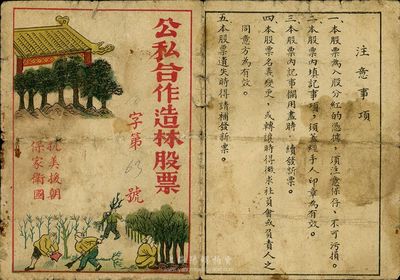 公私合作造林股票
字第63號
抗美援朝
保家衛國
注意事項
一、本股票為入股分紅的憑據，須注意保存、不可污損。
二、本股票內填記事項，須蓋經手人印章為有效。
三、本股票內記事欄用盡時，續發新票。
四、本股票名義變更、或轉讓時得徵求社員會或負責人之
同意方為有效。
五、本股票遺失時得請補發新票。